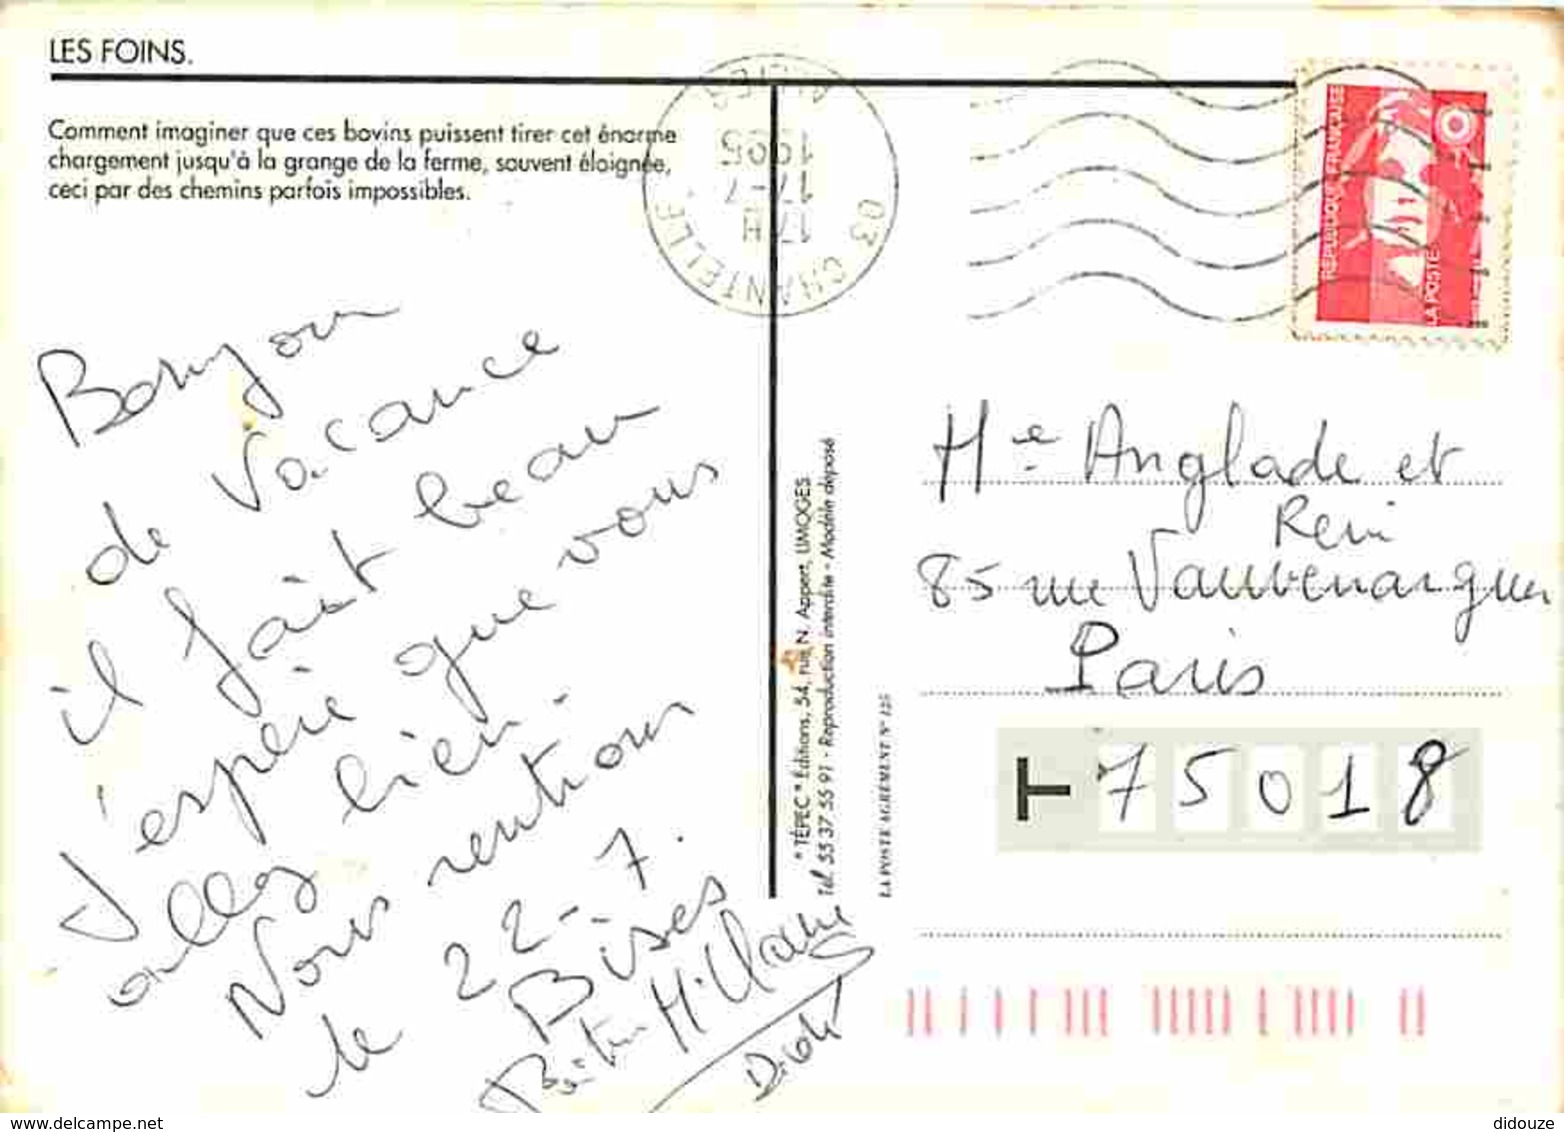 LES FOINS.
Comment imaginer que ces bovins puissent tirer cet énorme
chargement jusqu'à la grange de la ferme, souvent éloignée,
ceci par des chemins parfois impossibles.
03 CHANTELLE
ALLIER
17H
17-7
1995
REPUBLIQUE FRANÇAISE
LA POSTE
Bonjour
de Vacance
il fait beau
J'espère que vous
allez bien.
Nous rentrons
le 22-7.
Bises
M.Claude
Didi
"TÉPEC" Éditions, 54, rue N. Appert, LIMOGES
Tél. 55 37 55 91 - Reproduction interdite - Modèle déposé
LA POSTE AGREMENT N° 125
Me Anglade et
Remi
85 rue Vauvenargues
Paris
T 75018
delcampe.net
didouze